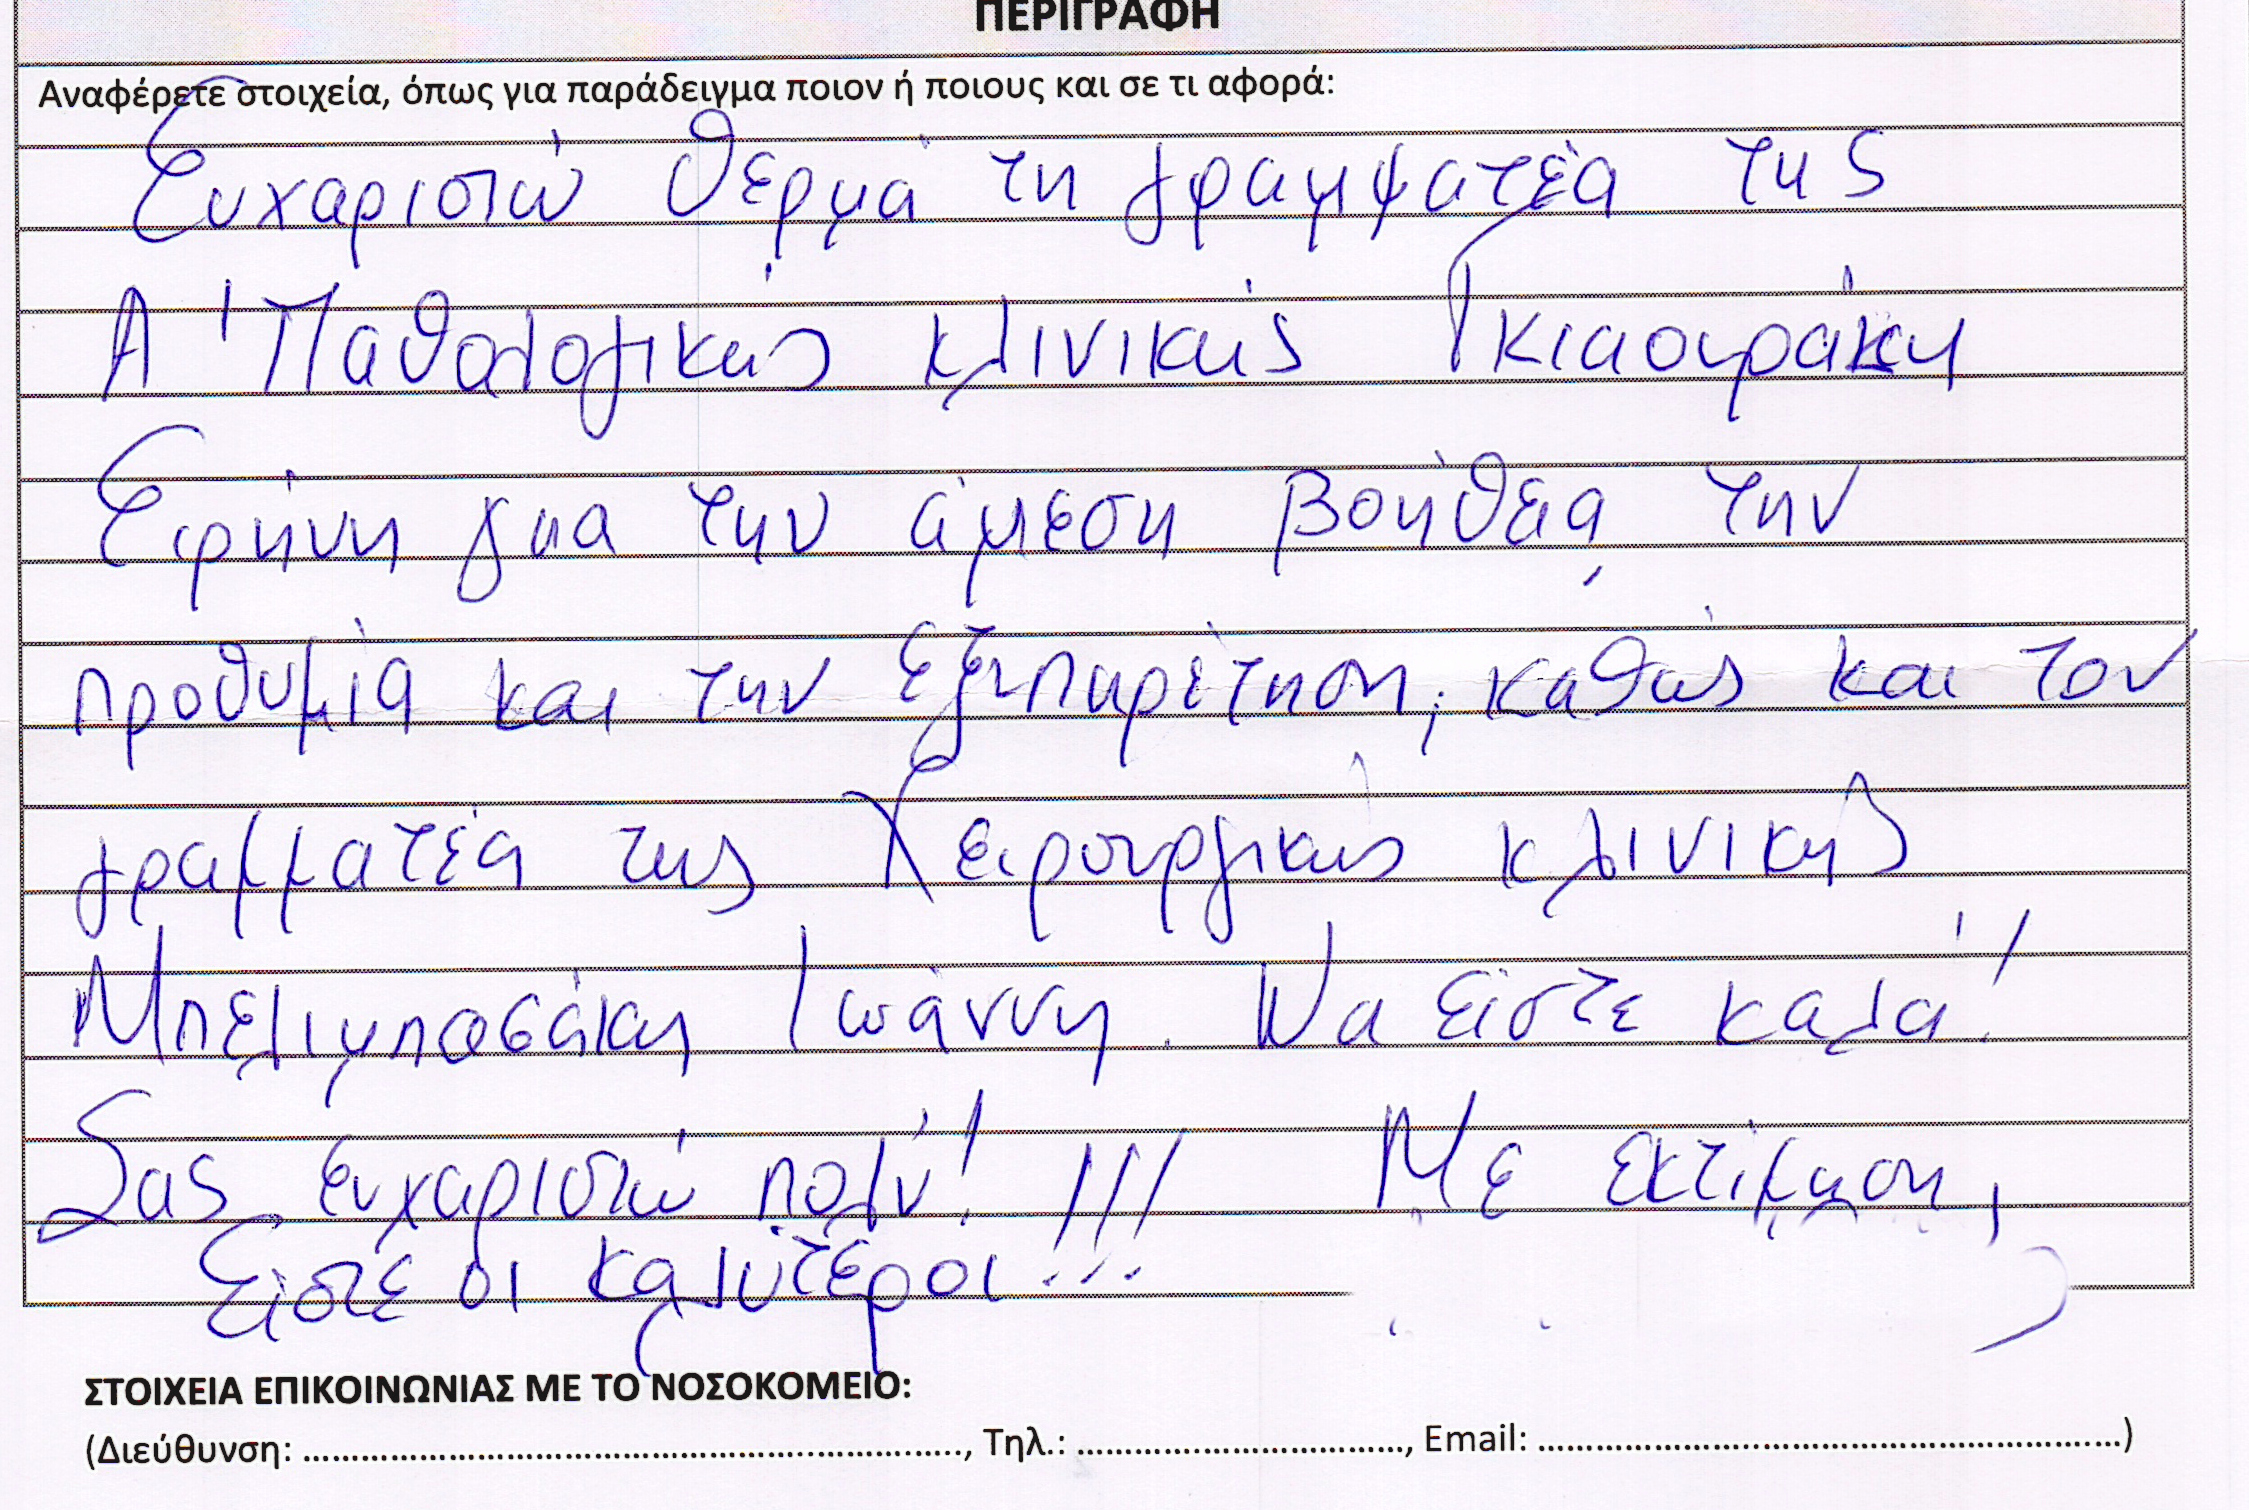 ΠΕΡΙΓΡΑΦΗ
Αναφέρετε στοιχεία, όπως για παράδειγμα ποιον ή ποιους και σε τι αφορά:
Ευχαριστώ θερμά τη γραμματέα της
Α' Παθολογικής κλινικής Γκιαουράκη
Ειρήνη για την άμεση βοήθεια, την
προθυμία και την εξυπηρέτηση, καθώς και τον
γραμματέα της Χειρουργικής κλινικής
Μπελιμπασάκη Ιωάννη. Να είστε καλά!
Σας ευχαριστώ πολύ! !!! Με εκτίμηση,
Είστε οι καλύτεροι...
ΣΤΟΙΧΕΙΑ ΕΠΙΚΟΙΝΩΝΙΑΣ ΜΕ ΤΟ ΝΟΣΟΚΟΜΕΙΟ:
(Διεύθυνση: ……………………………………………………, Τηλ.: ……………………………, Email: ……………………………………………………)